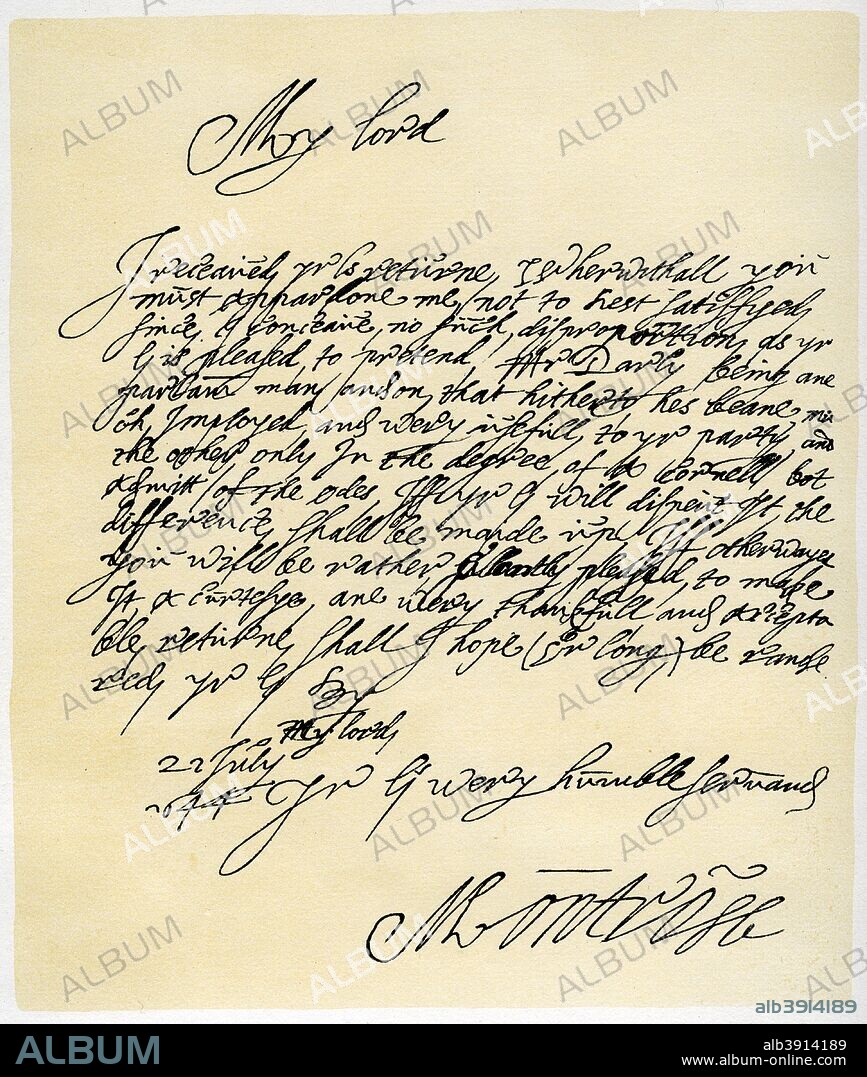 My lord
I receaued yr Ls returne, wherwithall you
must pardone me not to rest satisfyed
since I conceaue no such disproportion as yr
L is pleased to pretend, Mr Darly being ane
parlam man and on that hitherto hes beane
Imployed and wery usefull to yr party and
the other only In the degree of a cornell bot
admitt of the odes, If yr L will dispenc It the
difference shall be maide up, If otherwayes
you will be rather pleased to make
It a curtesye, ane wery thankfull and accepta
ble returne shall I hope (or long) be rande
red yr L By
My lord
22 July
1644 Yr Ls wery humble seruand
Montrose
ALBUM
alb3914189
ALBUM
alb3914189
www.album-online.com